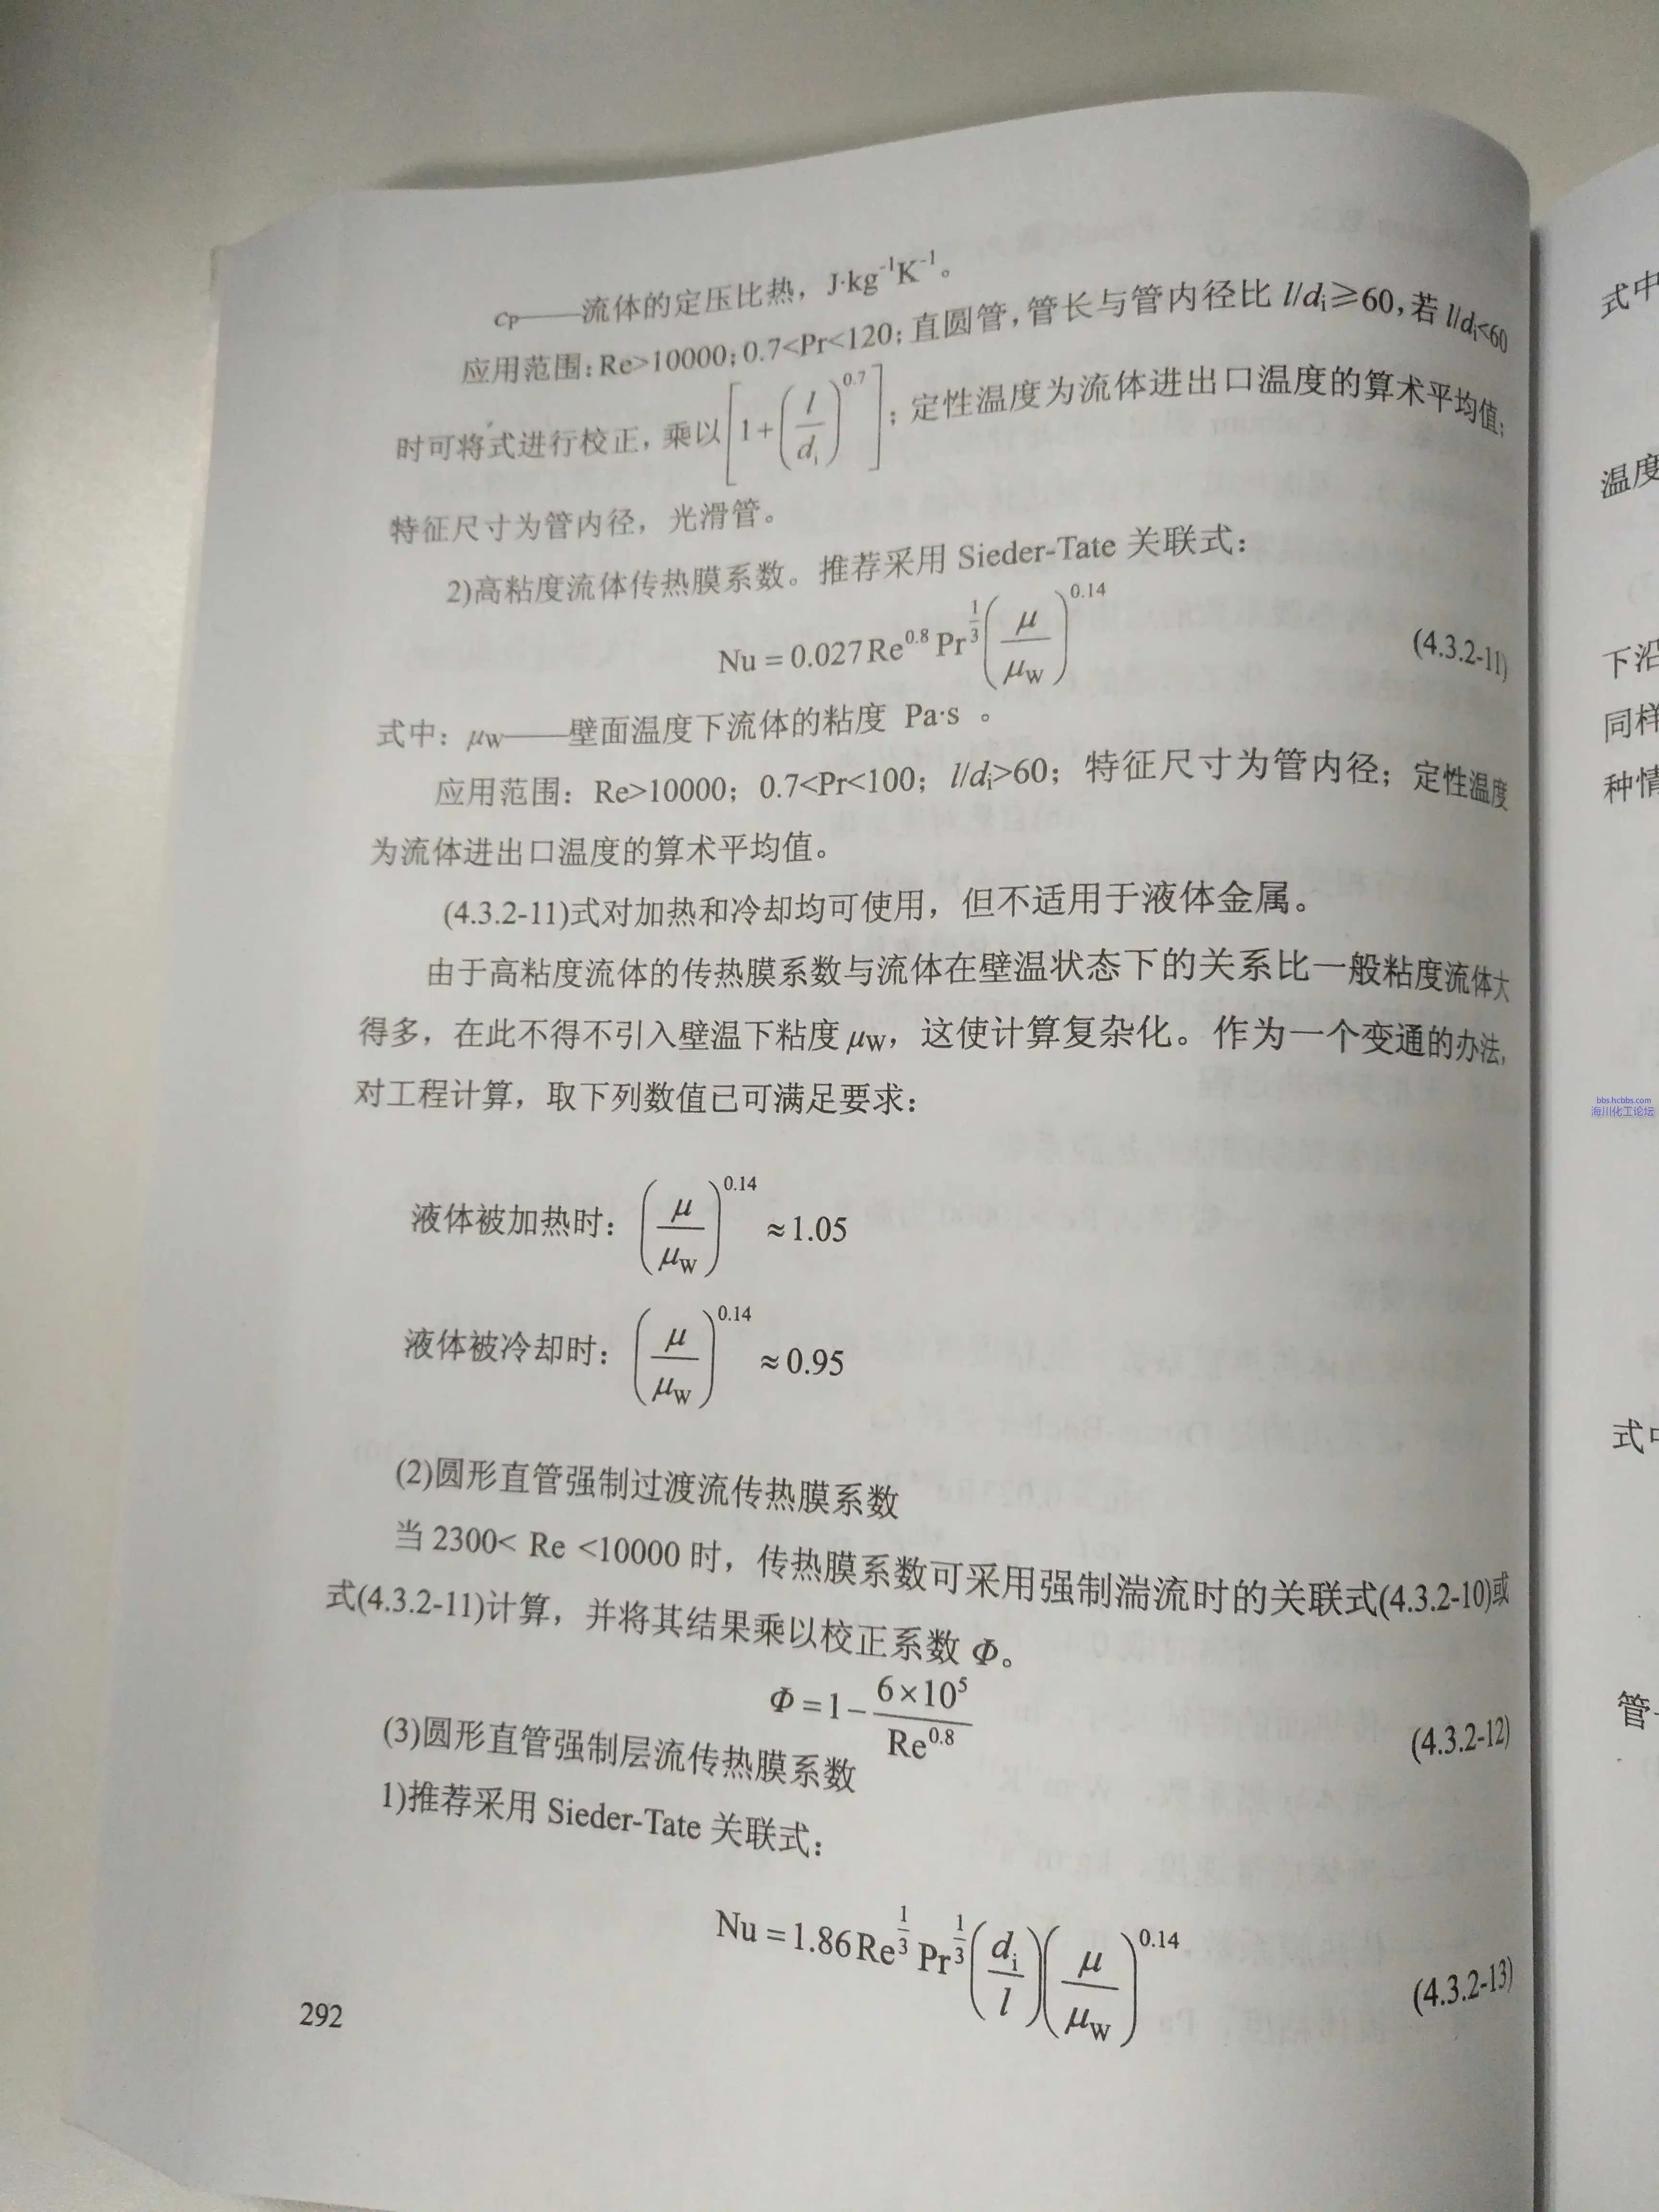 c_P——流体的定压比热，J·kg⁻¹K⁻¹。
应用范围：Re>10000；0.7<Pr<120；直圆管，管长与管内径比 l/d_i≥60，若 l/d_i<60
时可将式进行校正，乘以[1+(l/d_i)^0.7]；定性温度为流体进出口温度的算术平均值；
特征尺寸为管内径，光滑管。
2)高粘度流体传热膜系数。推荐采用 Sieder-Tate 关联式：
Nu = 0.027Re^0.8 Pr^(1/3) (μ/μ_W)^0.14 (4.3.2-11)
式中：μ_W——壁面温度下流体的粘度 Pa·s 。
应用范围：Re>10000；0.7<Pr<100；l/d_i>60；特征尺寸为管内径；定性温度
为流体进出口温度的算术平均值。
(4.3.2-11)式对加热和冷却均可使用，但不适用于液体金属。
由于高粘度流体的传热膜系数与流体在壁温状态下的关系比一般粘度流体大
得多，在此不得不引入壁温下粘度 μ_W，这使计算复杂化。作为一个变通的办法，
对工程计算，取下列数值已可满足要求：
液体被加热时：(μ/μ_W)^0.14 ≈1.05
液体被冷却时：(μ/μ_W)^0.14 ≈0.95
(2)圆形直管强制过渡流传热膜系数
当 2300< Re <10000 时，传热膜系数可采用强制湍流时的关联式(4.3.2-10)或
式(4.3.2-11)计算，并将其结果乘以校正系数 Φ。
Φ=1-(6×10^5)/(Re^0.8) (4.3.2-12)
(3)圆形直管强制层流传热膜系数
1)推荐采用 Sieder-Tate 关联式：
Nu = 1.86Re^(1/3) Pr^(1/3) (d_i/l)(μ/μ_W)^0.14 (4.3.2-13)
292
式中
温度
下沿
同样
种情
bbs.hcbbs.com
海川化工论坛
式中
管